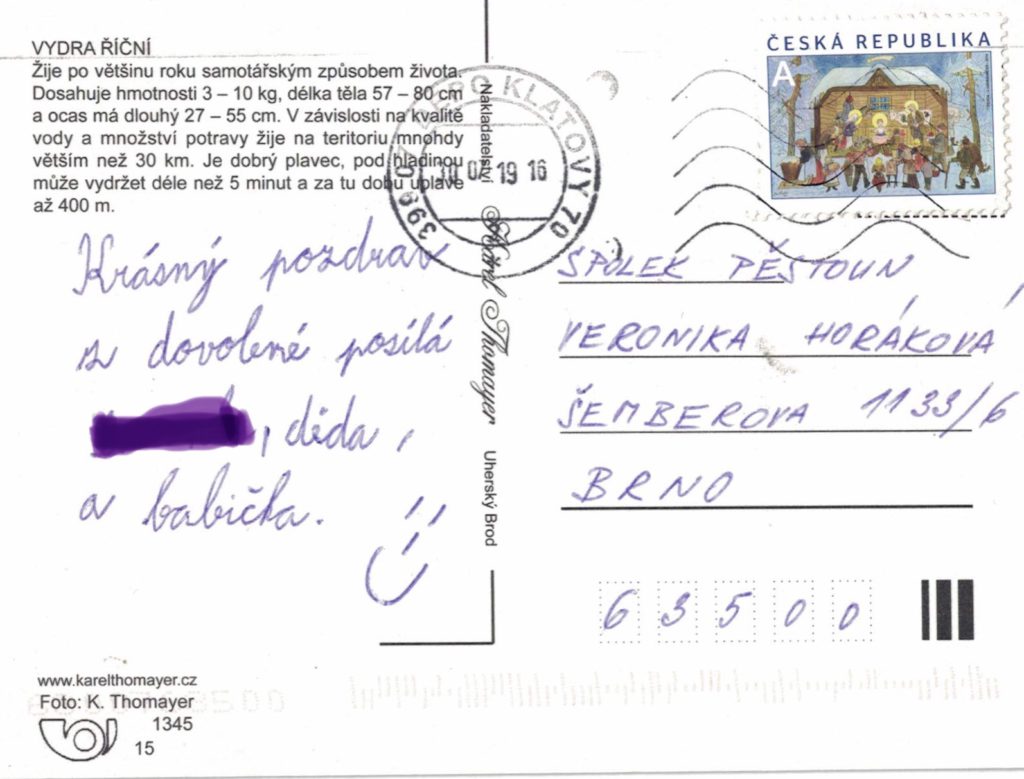 VYDRA ŘÍČNÍ
Žije po většinu roku samotářským způsobem života.
Dosahuje hmotnosti 3 – 10 kg, délka těla 57 – 80 cm
a ocas má dlouhý 27 – 55 cm. V závislosti na kvalitě
vody a množství potravy žije na teritoriu mnohdy
větším než 30 km. Je dobrý plavec, pod hladinou
může vydržet déle než 5 minut a za tu dobu uplave
až 400 m.
Krásný pozdrav
z dovolené posílá
, děda,
a babička.
www.karelthomayer.cz
Foto: K. Thomayer
1345
15
Nakladatelství Karel Thomayer Uherský Brod
DEPO KLATOVY 70
19 16
ČESKÁ REPUBLIKA
A
SPOLEK PĚSTOUN
VERONIKA HORÁKOVÁ
ŠEMBEROVA 1133/6
BRNO
63500